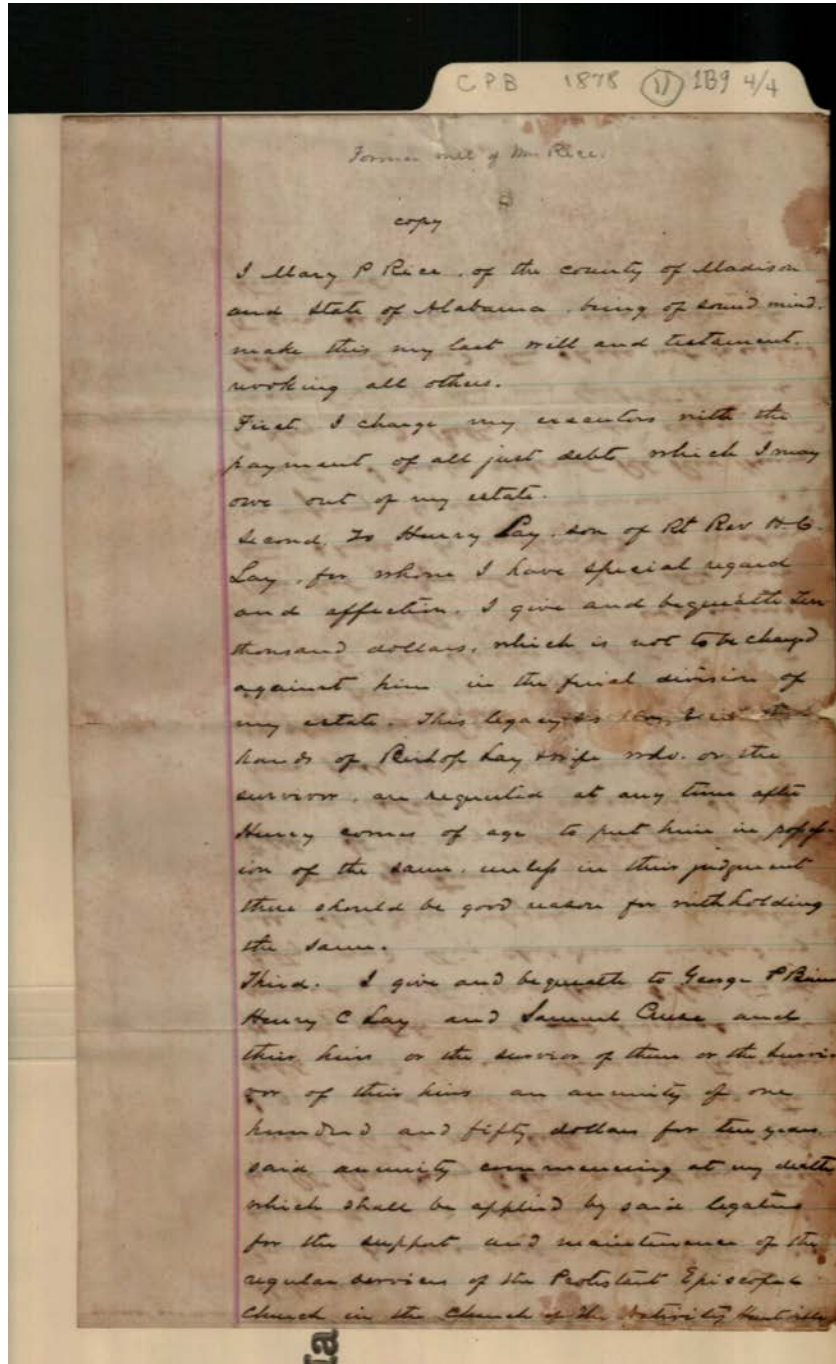 C P B 1878 11 1B9 4/4
Former will of Mrs Rice.
copy
I Mary P Rice, of the county of Madison
and State of Alabama, being of sound mind,
make this my last will and testament.
revoking all others.
First. I charge my executors with the
payment, of all just debts which I may
owe out of my estate.
Second, To Henry Lay, son of Rt Rev H. C.
Lay, for whom I have special regard
and affection. I give and bequeathe Ten
thousand dollars, which is not to be charged
against him in the final division of
my estate. This legacy is
hands of Bishop Lay & wife who. or the
survivor, are requested at any time after
Henry comes of age to put him in possess-
ion of the same. unless in their judgment
there should be good reason for withholding
the same.
Third. I give and bequeathe to George P
Henry C Lay and Samuel Cruse and
their heirs or the survior of them or the survi-
vor of their heirs an annuity of one
hundred and fifty dollars for ten years.
said annuity commencing at my death
which shall be applied by said legatees
for the support and maintenence of the
regular services of the Protestant Episcopal
Church in the Church of the Nativity Huntsville
la